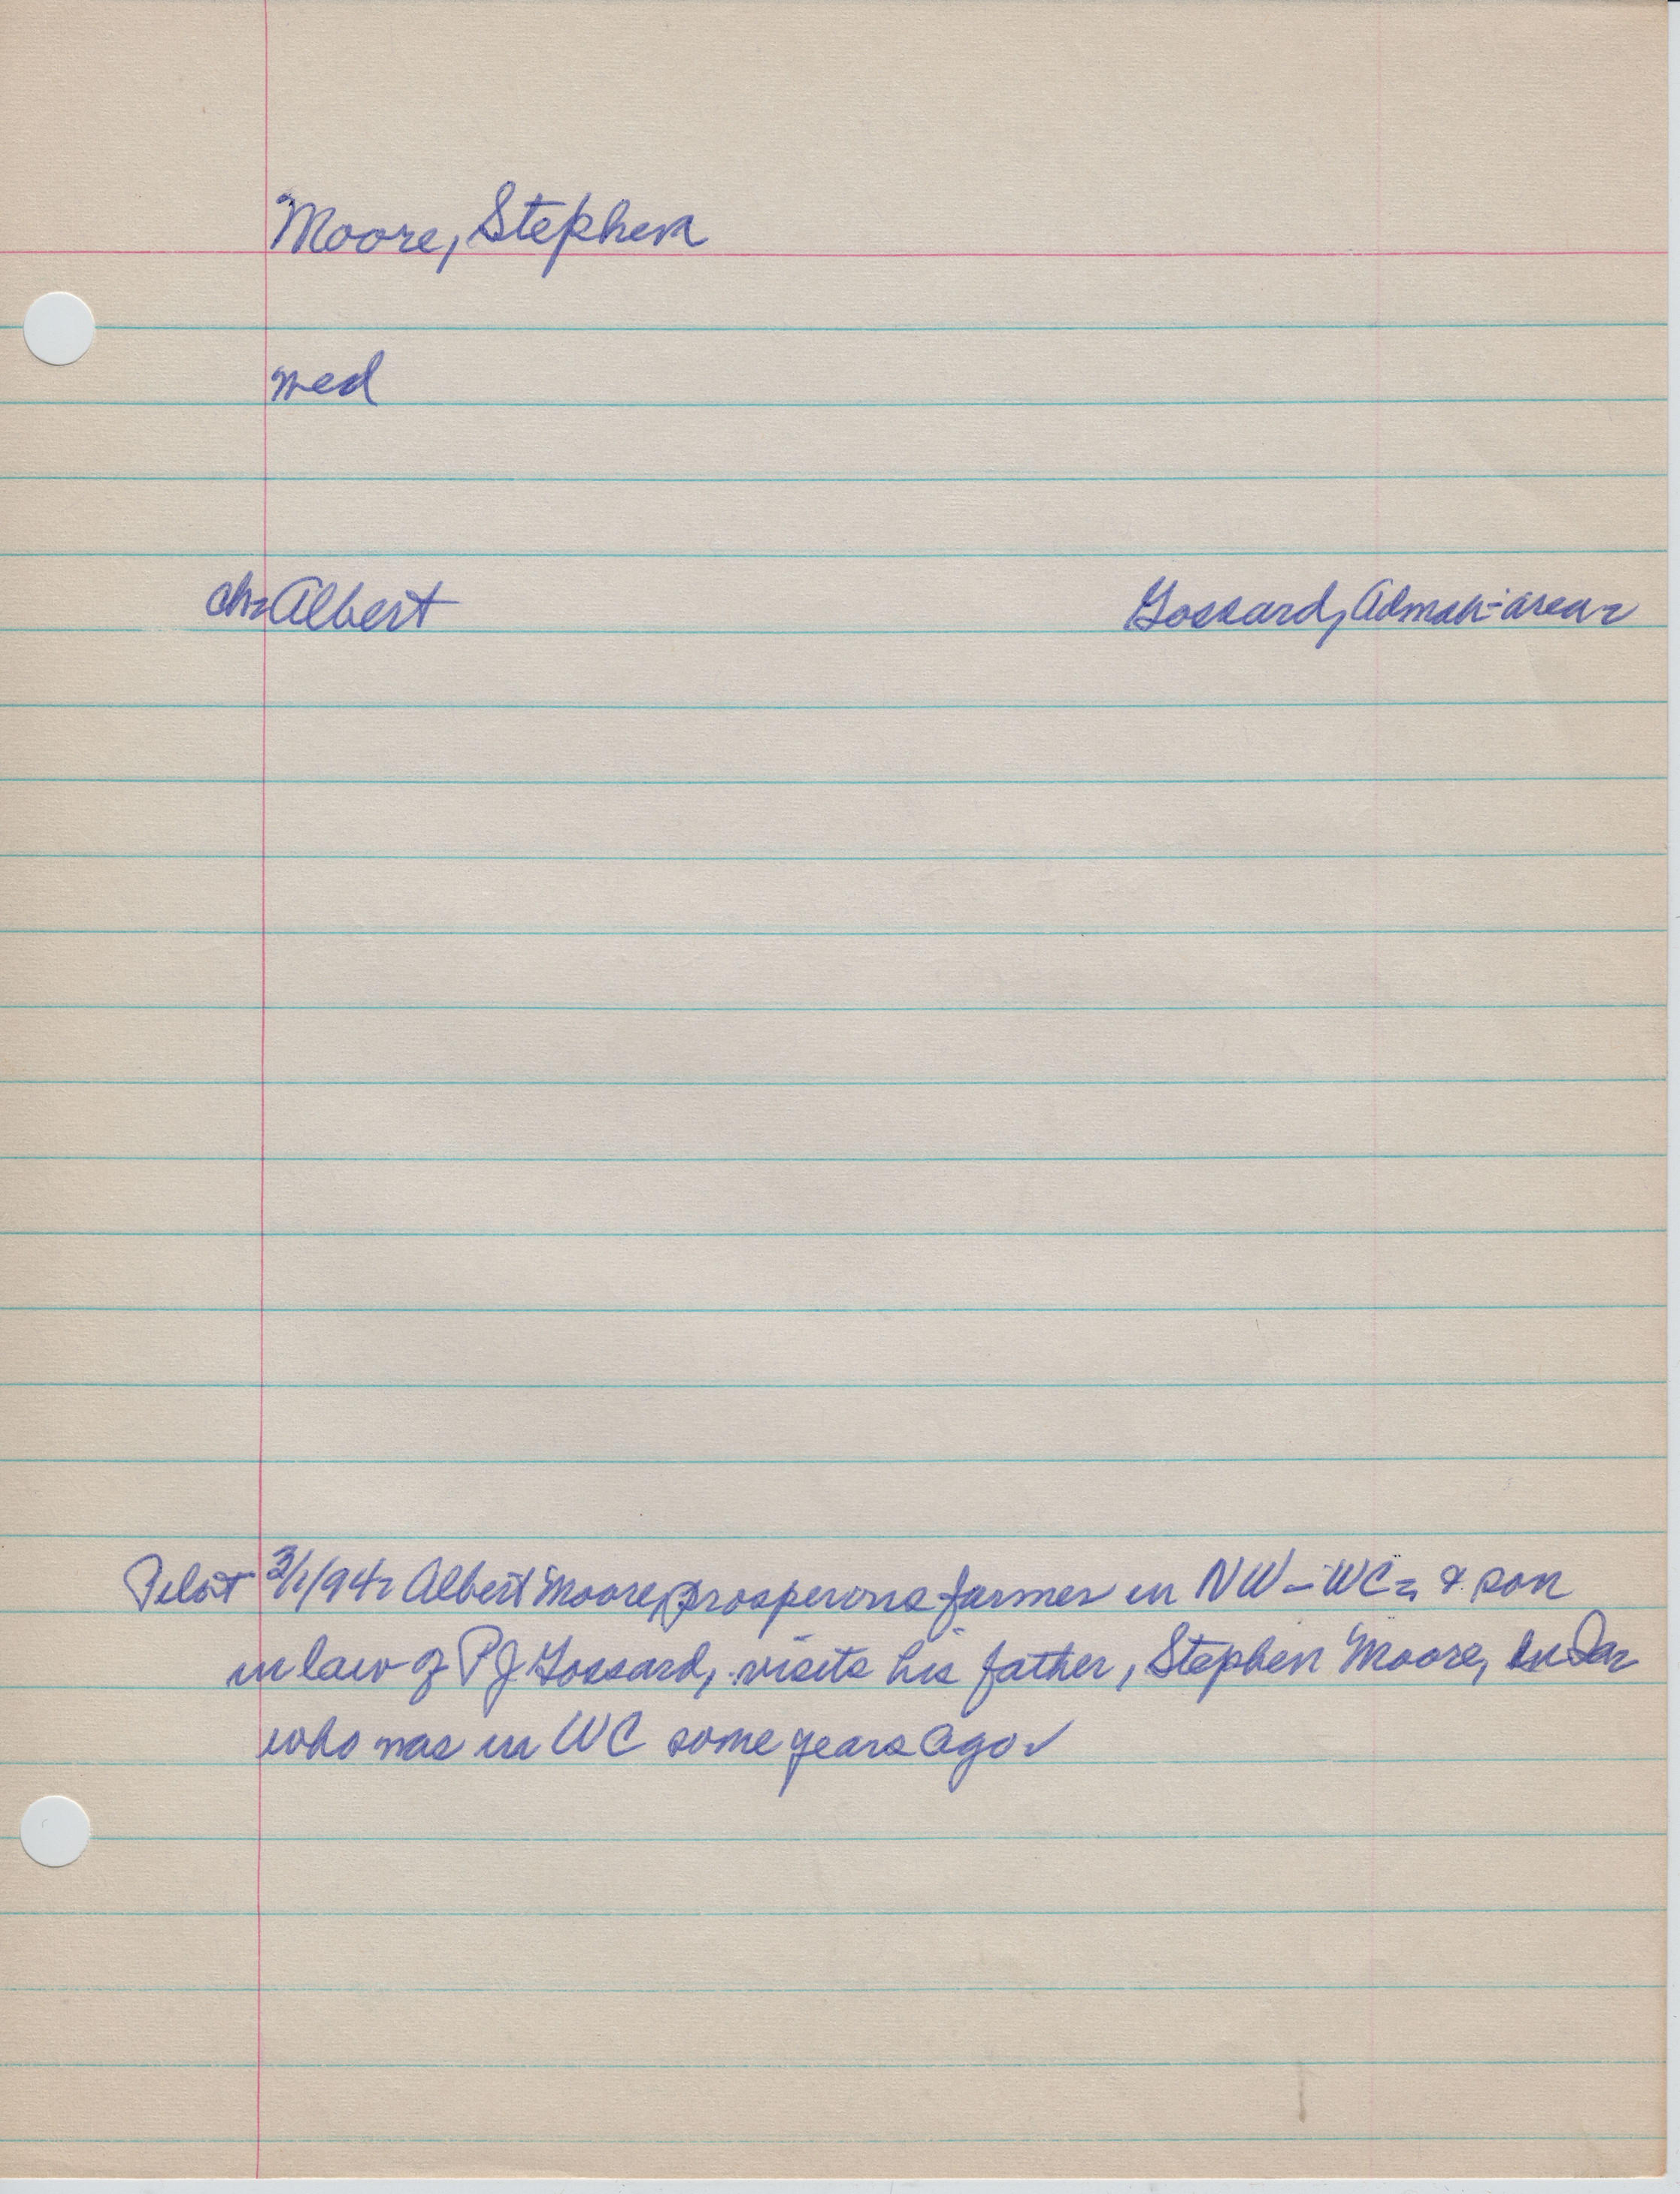 Moore, Stephen
med
ch- Albert Gossard, Admah area-
Pilot 3/1/94- Albert Moore, prosperous farmer in NW - WC - & son
in law of PJ Gossard, visits his father, Stephen Moore, in
who was in WC some years ago